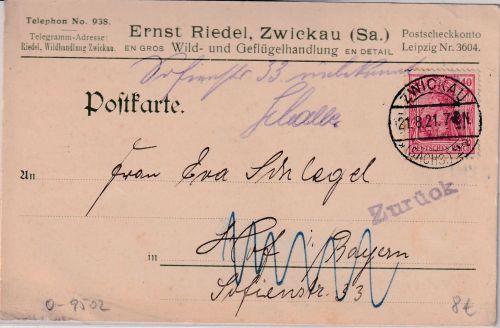 Telephon No. 938.
Telegramm-Adresse:
Riedel, Wildhandlung Zwickau.
Ernst Riedel, Zwickau (Sa.)
EN GROS Wild- und Geflügelhandlung EN DETAIL
Postscheckkonto
Leipzig Nr. 3604.
Sofienstr 33 unbekannt
Postkarte.
ZWICKAU
21.8.21. 7-8N.
(SACHS.)
10
An Frau Eva Schlegel
Zurück
in Hof i/Bayern
Sofienstr. 33
0-9502
8€